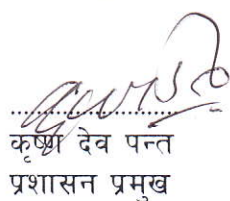 ..........................
कृष्ण देव पन्त
प्रशासन प्रमुख